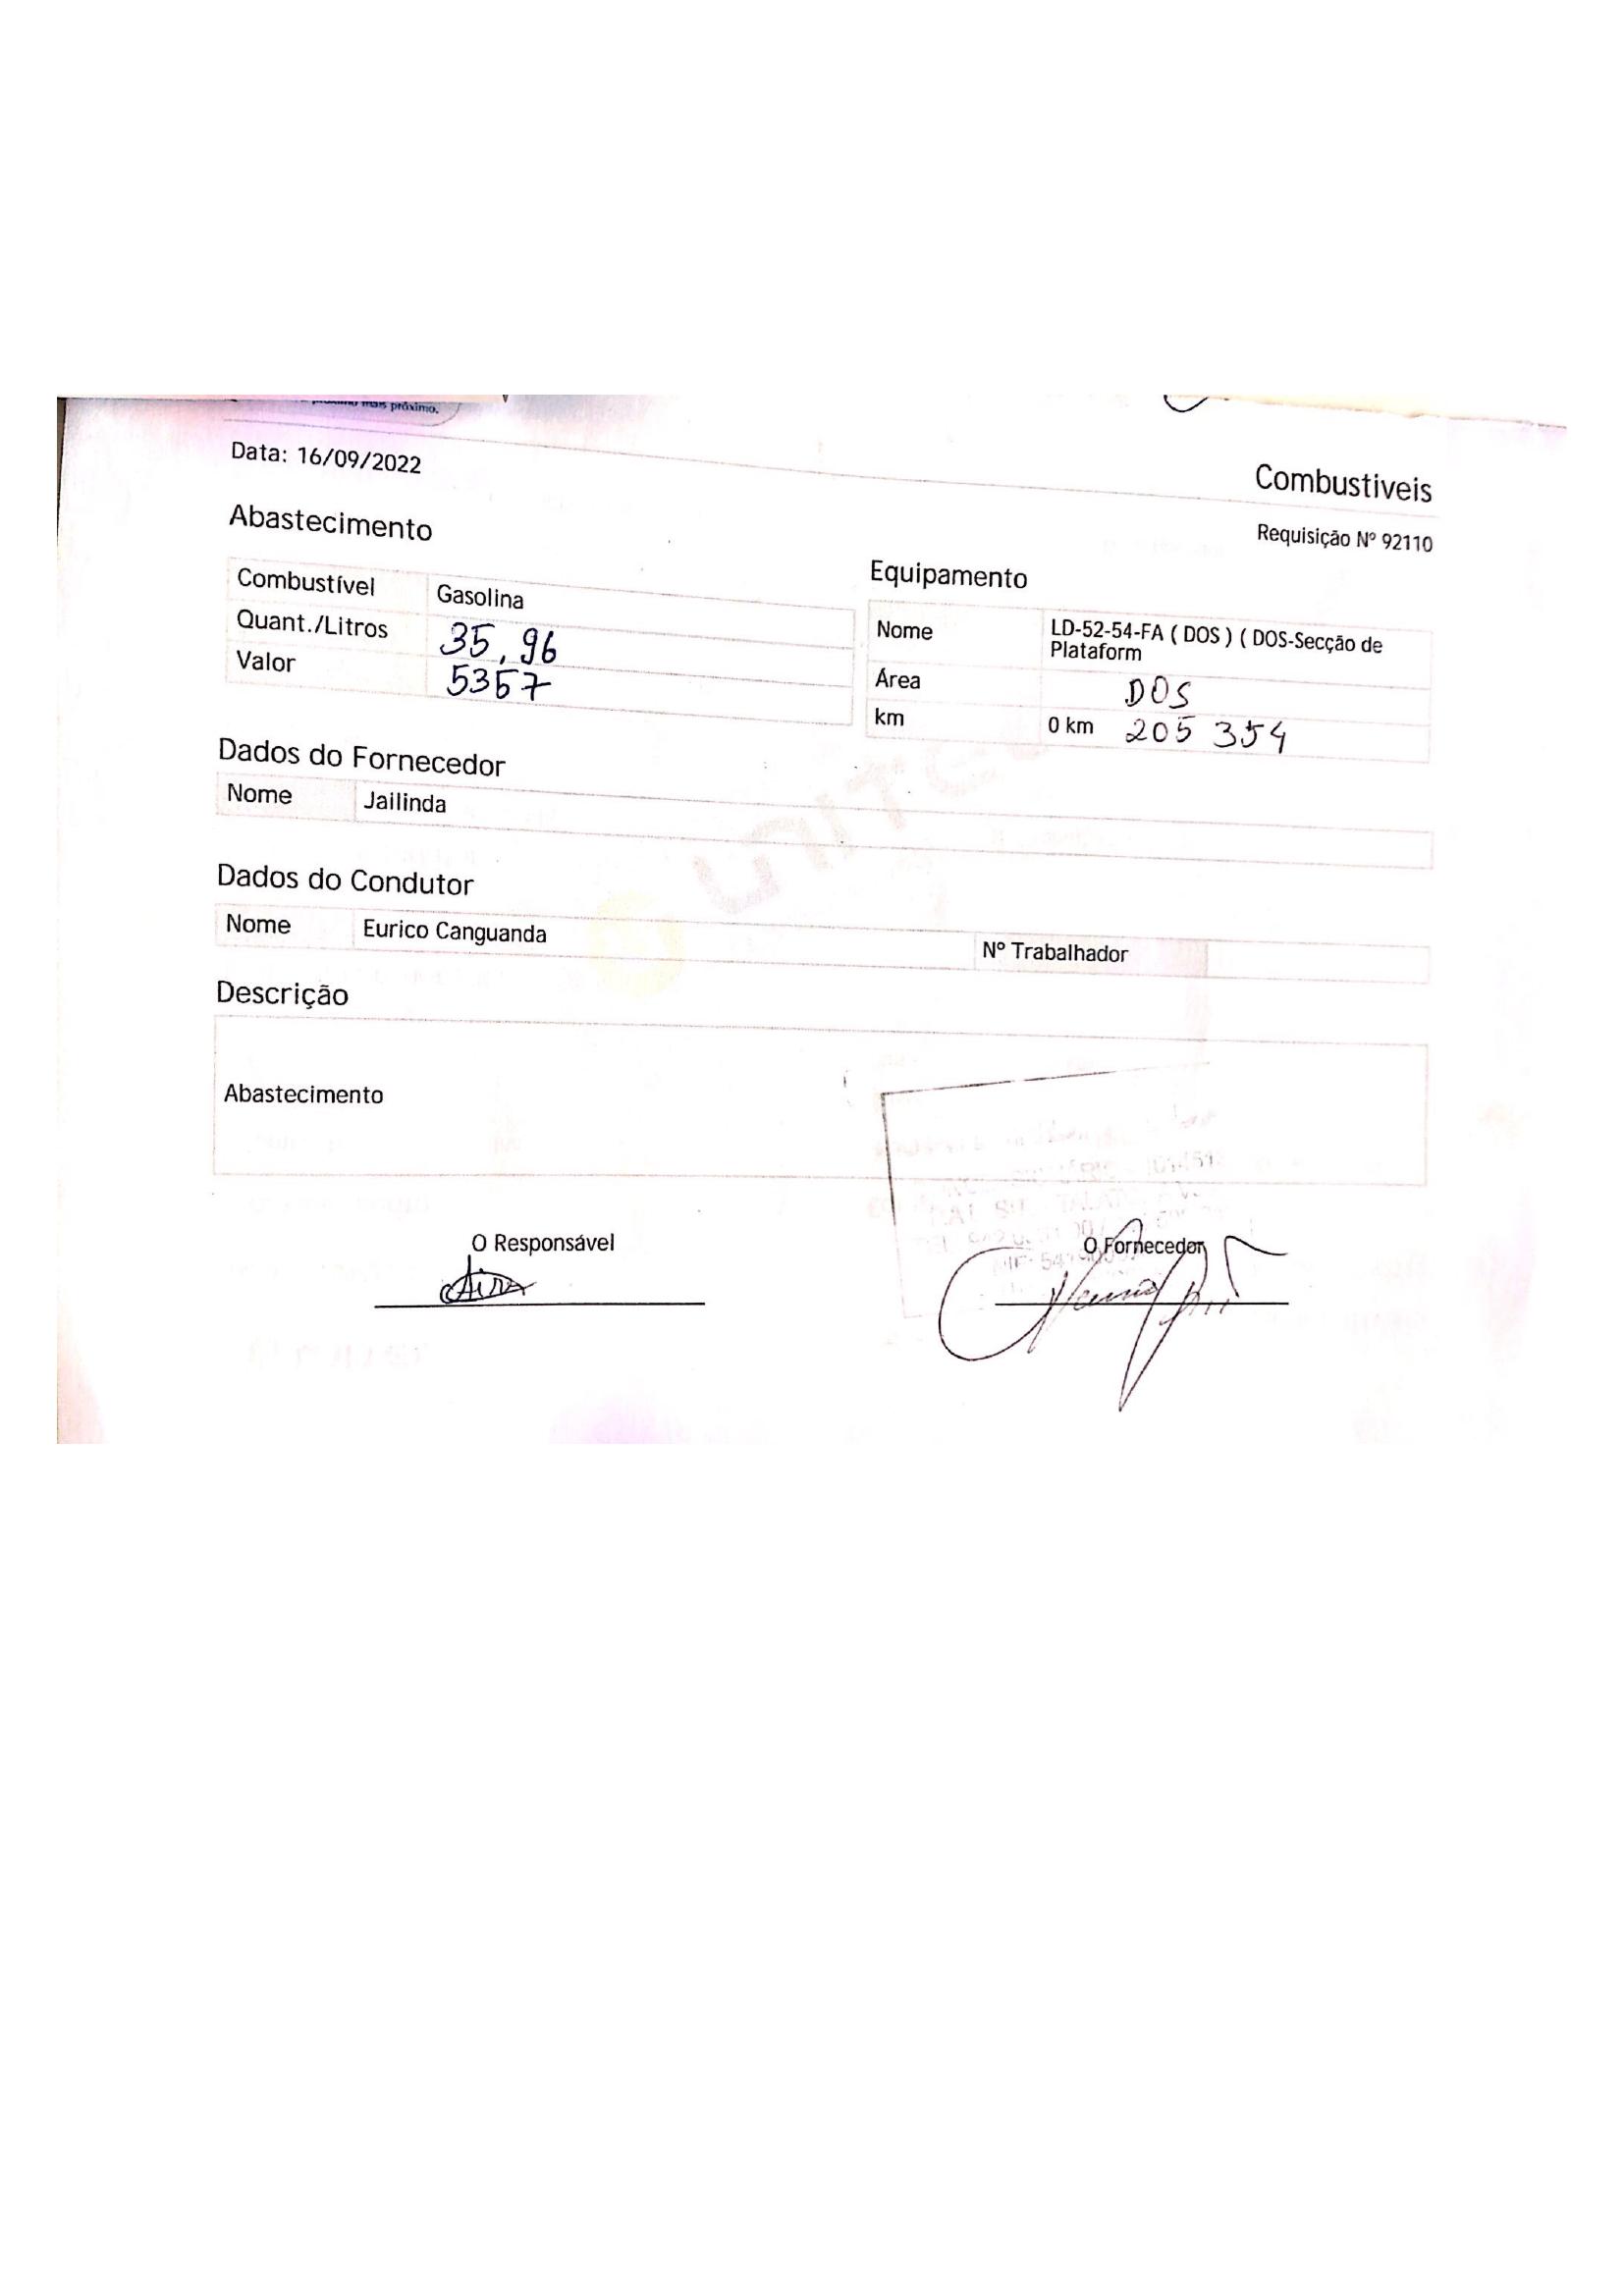 mais próximo.
Data: 16/09/2022
Combustiveis
Requisição Nº 92110
Abastecimento
Combustível Gasolina
Quant./Litros 35,96
Valor 5357
Equipamento
Nome LD-52-54-FA ( DOS ) ( DOS-Secção de
Plataform
Área DOS
km 0 km 205 354
Dados do Fornecedor
Nome Jailinda
Dados do Condutor
Nome Eurico Canguanda Nº Trabalhador
Descrição
Abastecimento
O Responsável
O Fornecedor